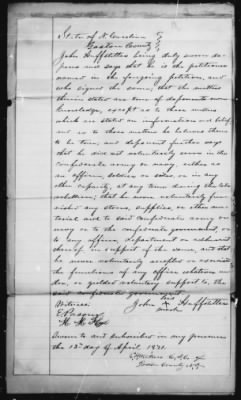 State of N. Carolina
Gaston County
John Huffstetter being duly sworn de-
poses and says that he is the petitioner
named in the foregoing petition, and
who signed the same; that the matters
therein stated are true of deponents own
knowledge, except as to those matters
which are stated on information and belief
and as to those matters he believes them
to be true, and deponent further says
that he did not voluntarily serve in the
confederate army or navy, either as
an officer, soldier or sailor, or in any
other capacity, at any time during the late
rebellion; that he never voluntarily fur-
nished any stores, supplies, or other ma-
terial aid to said confederate army or
navy or to the confederate government, or
to any officer, department or adherent
thereof in support of the same, and that
he never voluntarily accepted or exercised
the functions of any office whatsoever un-
der, or yielded voluntary support to, the
said confederate government
Witness his
John x Huffstetter
mark
E. Pasour
Sworn to and subscribed in my presence
the 13th day of April 1871.
Gaston County N.C.